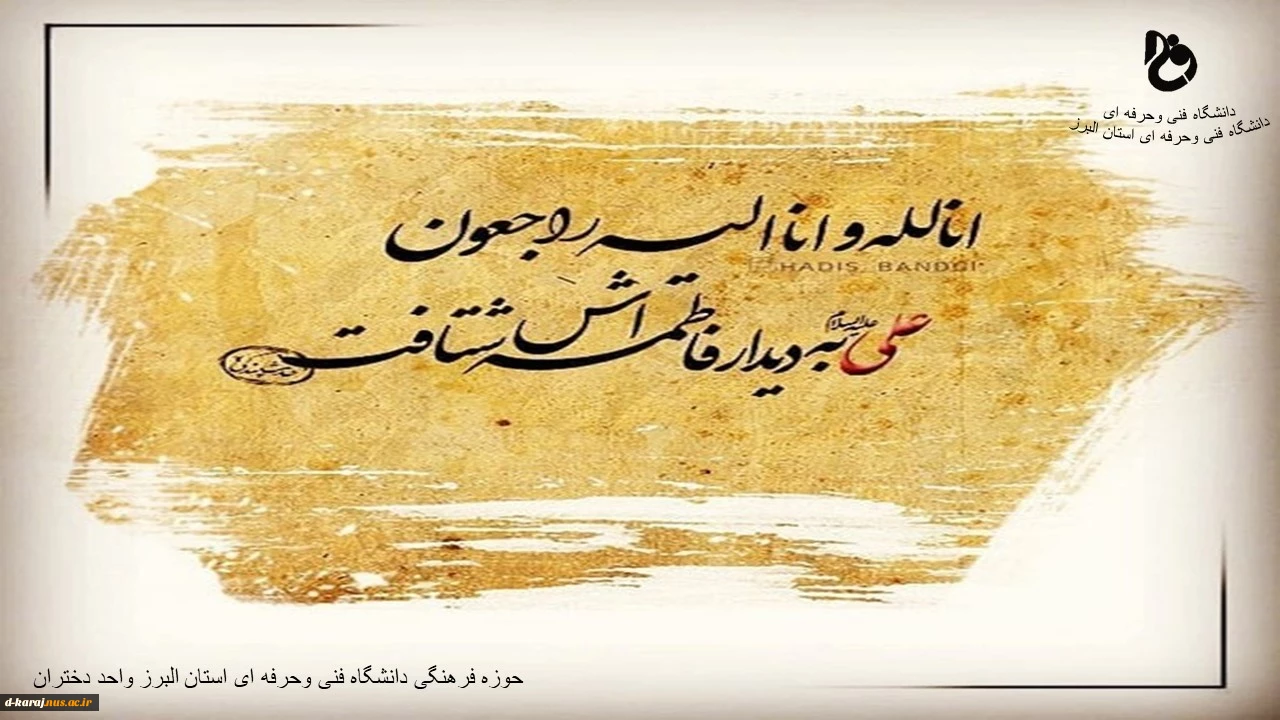 دانشگاه فنی وحرفه ای
دانشگاه فنی وحرفه ای استان البرز
انالله و انا الیه راجعون
HADIS BANDGI
علی علیه‌السلام به دیدار فاطمه اش شتافت
حوزه فرهنگی دانشگاه فنی وحرفه ای استان البرز واحد دختران
d-karaj.nus.ac.ir